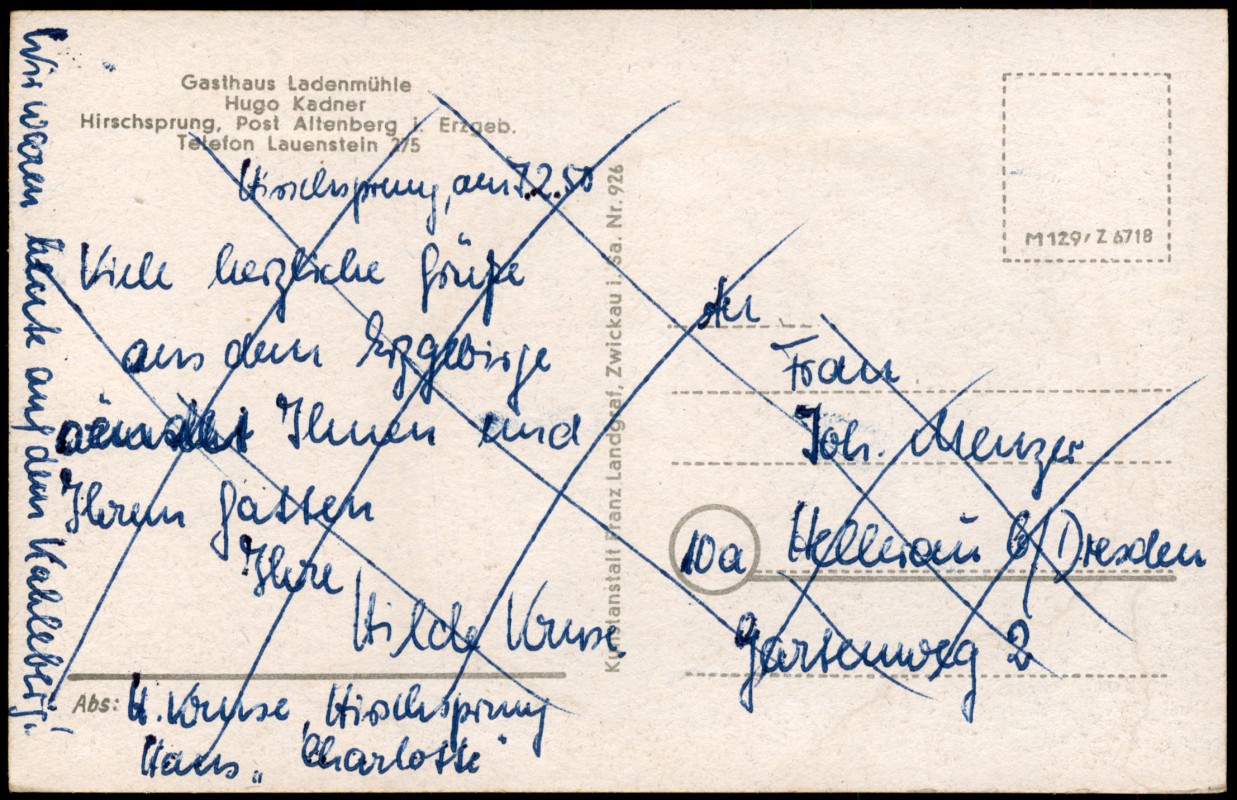 Gasthaus Ladenmühle
Hugo Kadner
Hirschsprung, Post Altenberg i. Erzgeb.
Telefon Lauenstein 275
Hirschsprung, am 7.2.50
Viele herzliche Grüße
aus dem Erzgebirge
Ihnen und
Ihrem Gatten
Ihre
Hilde Kruse
Abs: H. Kruse, Hirschsprung
Haus „Charlotte"
Wir waren heute auf dem Kahleberg!
Kunstanstalt Franz Landgraf, Zwickau i. Sa. Nr. 926
M 129/Z 6718
An
Frau
Joh. Menzer
10a Hellerau b/Dresden
Gartenweg 2